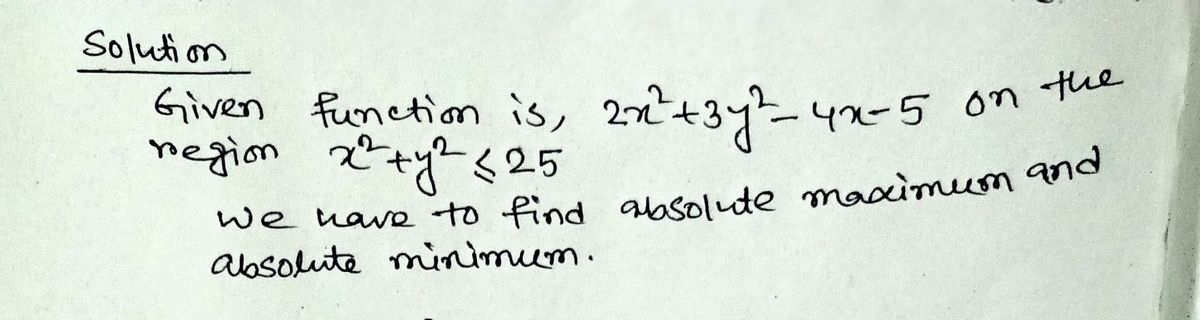 Solution
Given function is, 2x²+3y²-4x-5 on the
region x²+y² ≤ 25
we have to find absolute maximum and
absolute minimum.